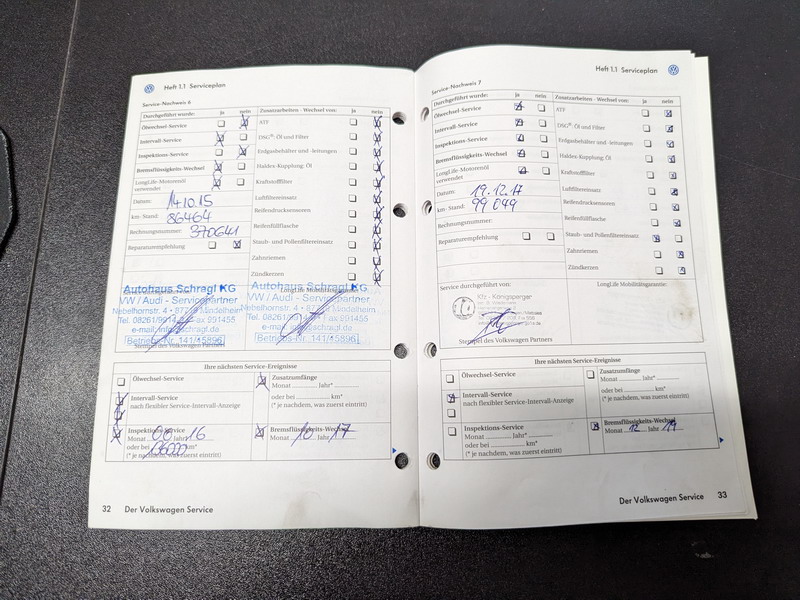 Heft 1.1 Serviceplan
Service-Nachweis 6
Durchgeführt wurde: ja nein
Ölwechsel-Service
Intervall-Service
Inspektions-Service
Bremsflüssigkeits-Wechsel
LongLife-Motorenöl
verwendet
Datum: 14.10.15
km-Stand: 86464
Rechnungsnummer: 370641
Reparaturempfehlung
Zusatzarbeiten - Wechsel von: ja nein
ATF
DSG®: Öl und Filter
Erdgasbehälter und -leitungen
Haldex-Kupplung: Öl
Kraftstofffilter
Luftfiltereinsatz
Reifendrucksensoren
Reifenfüllflasche
Staub- und Pollenfiltereinsatz
Zahnriemen
Zündkerzen
Autohaus Schragl KG
VW / Audi - Servicepartner
Tel. 08261/9914
Betriebs-Nr. 141/45896
Autohaus Schragl KG
VW / Audi - Servicepartner
Nebelhornstr. 4 • 87719 Mindelheim
Betriebs-Nr. 141/45896
Stempel des Volkswagen Partners
Ihre nächsten Service-Ereignisse
Ölwechsel-Service
Intervall-Service
nach flexibler Service-Intervall-Anzeige
Inspektions-Service
Monat Jahr* 16
oder bei km*
(* je nachdem, was zuerst eintritt)
Zusatzumfänge
Monat Jahr*
oder bei km*
(* je nachdem, was zuerst eintritt)
Bremsflüssigkeits-Wechsel
Monat 10 Jahr 17
32 Der Volkswagen Service
Heft 1.1 Serviceplan
Service-Nachweis 7
Durchgeführt wurde: ja nein
Ölwechsel-Service
Intervall-Service
Inspektions-Service
Bremsflüssigkeits-Wechsel
LongLife-Motorenöl
verwendet
Datum: 19.12.17
km-Stand: 99 049
Rechnungsnummer:
Reparaturempfehlung
Zusatzarbeiten - Wechsel von: ja nein
ATF
DSG®: Öl und Filter
Erdgasbehälter und -leitungen
Haldex-Kupplung: Öl
Kraftstofffilter
Luftfiltereinsatz
Reifendrucksensoren
Reifenfüllflasche
Staub- und Pollenfiltereinsatz
Zahnriemen
Zündkerzen
Service durchgeführt von:
LongLife Mobilitätsgarantie:
Kfz - Königsperger
Stempel des Volkswagen Partners
Ihre nächsten Service-Ereignisse
Ölwechsel-Service
Intervall-Service
nach flexibler Service-Intervall-Anzeige
Inspektions-Service
Monat Jahr*
oder bei km*
(* je nachdem, was zuerst eintritt)
Zusatzumfänge
Monat Jahr*
oder bei km*
(* je nachdem, was zuerst eintritt)
Bremsflüssigkeits-Wechsel
Monat 12 Jahr 19
Der Volkswagen Service 33